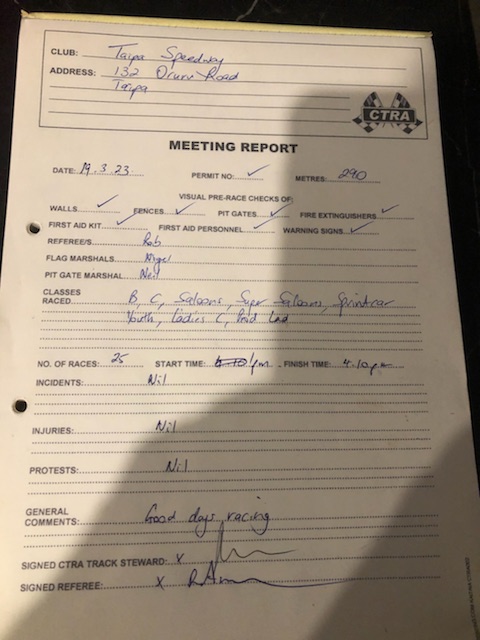 CLUB: Taipa Speedway
ADDRESS: 132 Oruru Road
Taipa
CTRA
MEETING REPORT
DATE: 19.3.23 PERMIT NO: ✓ METRES: 290
VISUAL PRE-RACE CHECKS OF:
WALLS ✓ FENCES ✓ PIT GATES ✓ FIRE EXTINGUISHERS ✓
FIRST AID KIT ✓ FIRST AID PERSONNEL ✓ WARNING SIGNS ✓
REFEREE/S Rob
FLAG MARSHALS Nigel
PIT GATE MARSHAL Neil
CLASSES
RACED B, C, Saloons, Super Saloons, Sprintcar
Youth, Ladies C, Prod
NO. OF RACES: 25 START TIME: 1pm FINISH TIME: 4.10pm
INCIDENTS: Nil
INJURIES: Nil
PROTESTS: Nil
GENERAL
COMMENTS: Good days racing
SIGNED CTRA TRACK STEWARD: X
SIGNED REFEREE: X